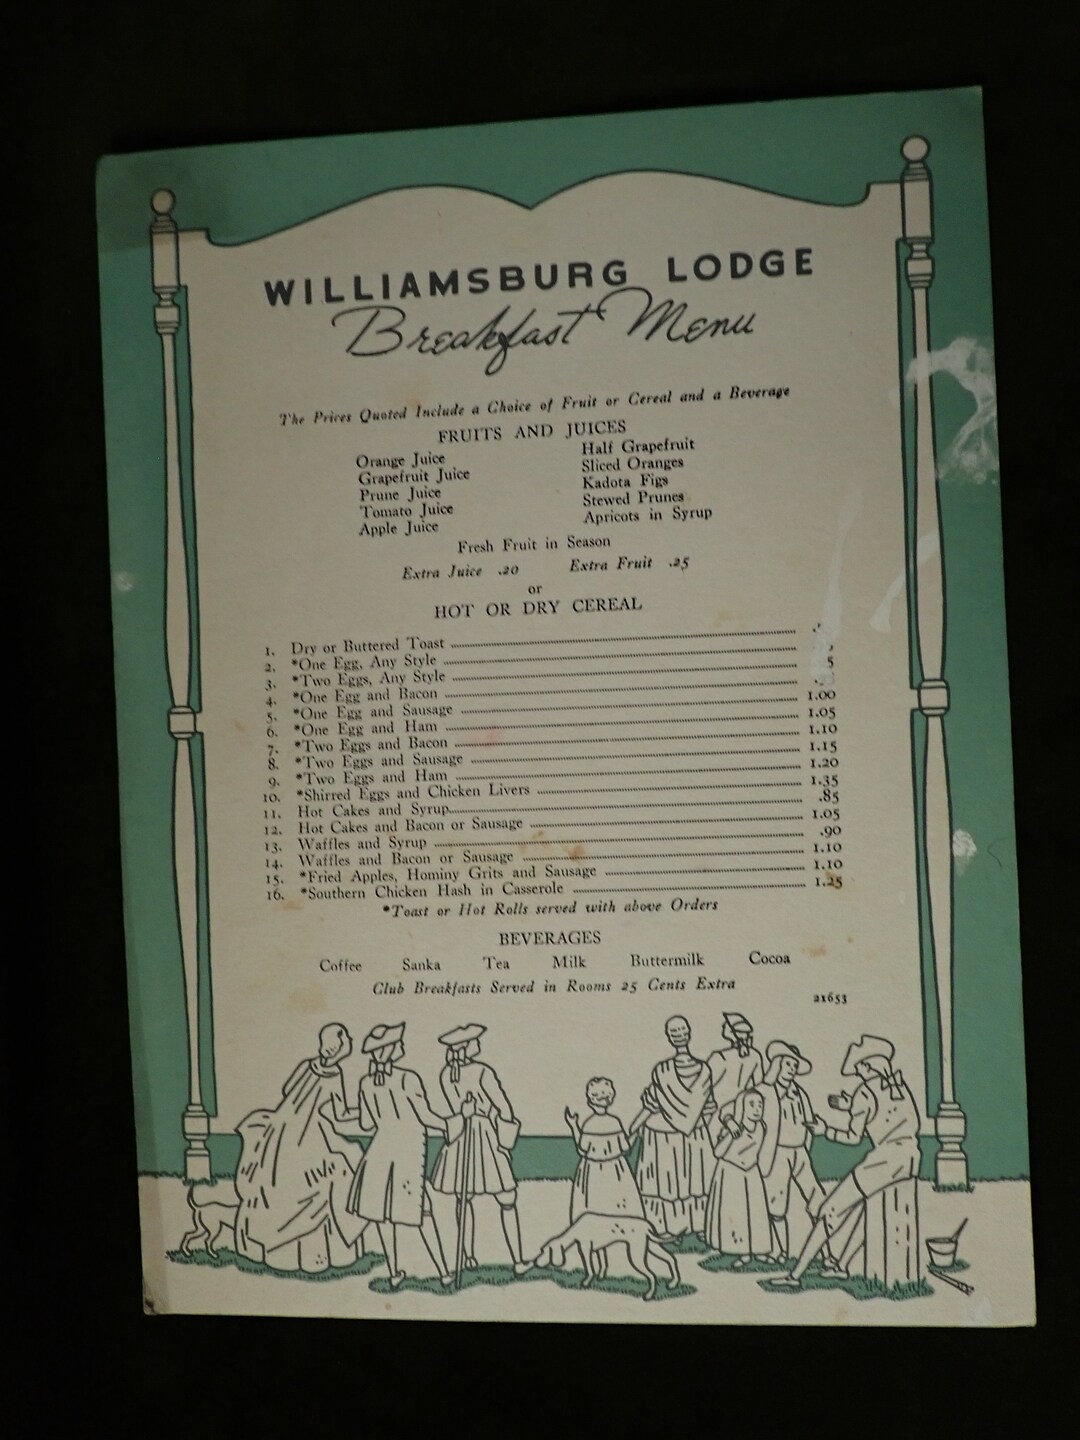 WILLIAMSBURG LODGE
Breakfast Menu
The Prices Quoted Include a Choice of Fruit or Cereal and a Beverage
FRUITS AND JUICES
Orange Juice Half Grapefruit
Grapefruit Juice Sliced Oranges
Prune Juice Kadota Figs
Tomato Juice Stewed Prunes
Apple Juice Apricots in Syrup
Fresh Fruit in Season
Extra Juice .20 Extra Fruit .25
or
HOT OR DRY CEREAL
1. Dry or Buttered Toast
2. *One Egg, Any Style
3. *Two Eggs, Any Style
4. *One Egg and Bacon
5. *One Egg and Sausage 1.00
6. *One Egg and Ham 1.05
7. *Two Eggs and Bacon 1.10
8. *Two Eggs and Sausage 1.15
9. *Two Eggs and Ham 1.20
10. *Shirred Eggs and Chicken Livers 1.35
11. Hot Cakes and Syrup .85
12. Hot Cakes and Bacon or Sausage 1.05
13. Waffles and Syrup .90
14. Waffles and Bacon or Sausage 1.10
15. *Fried Apples, Hominy Grits and Sausage 1.10
16. *Southern Chicken Hash in Casserole 1.25
*Toast or Hot Rolls served with above Orders
BEVERAGES
Coffee Sanka Tea Milk Buttermilk Cocoa
Club Breakfasts Served in Rooms 25 Cents Extra
21653